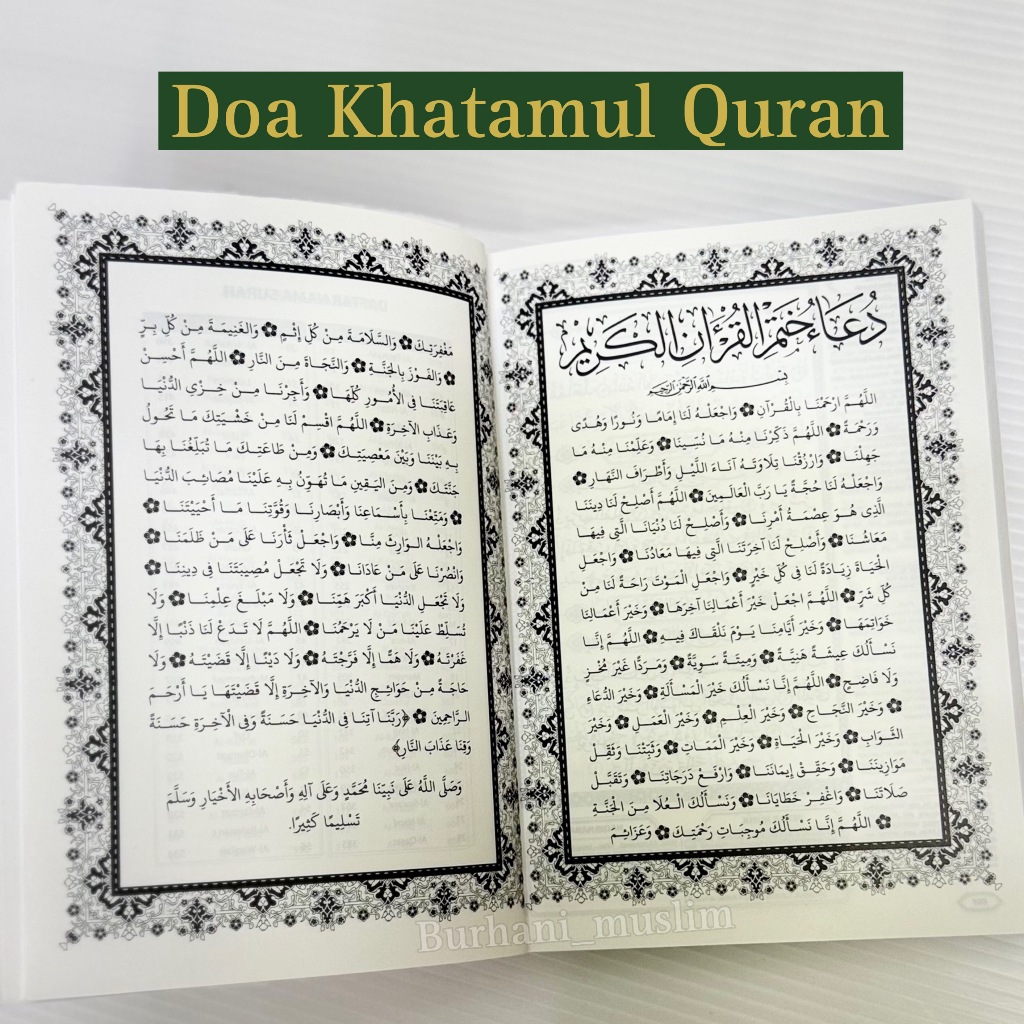 Doa Khatamul Quran
دُعَاءُ خَتْمِ الْقُرْءَانِ الْكَرِيْمِ
بِسْمِ اللَّهِ الرَّحْمَٰنِ الرَّحِيمِ
اَللَّهُمَّ ارْحَمْنَا بِالْقُرْآنِ ✿ وَاجْعَلْهُ لَنَا إِمَامًا وَنُورًا وَهُدًى
وَرَحْمَةً ✿ اَللَّهُمَّ ذَكِّرْنَا مِنْهُ مَا نُسِّينَا ✿ وَعَلِّمْنَا مِنْهُ مَا
جَهِلْنَا ✿ وَارْزُقْنَا تِلَاوَتَهُ آنَاءَ اللَّيْلِ وَأَطْرَافَ النَّهَارِ ✿
وَاجْعَلْهُ لَنَا حُجَّةً يَا رَبَّ الْعَالَمِينَ ✿ اَللَّهُمَّ أَصْلِحْ لَنَا دِينَنَا
الَّذِى هُوَ عِصْمَةُ أَمْرِنَا ✿ وَأَصْلِحْ لَنَا دُنْيَانَا الَّتِى فِيهَا
مَعَاشُنَا ✿ وَأَصْلِحْ لَنَا آخِرَتَنَا الَّتِى فِيهَا مَعَادُنَا ✿ وَاجْعَلِ
الْحَيَاةَ زِيَادَةً لَنَا فِى كُلِّ خَيْرٍ ✿ وَاجْعَلِ الْمَوْتَ رَاحَةً لَنَا مِنْ
كُلِّ شَرٍّ ✿ اَللَّهُمَّ اجْعَلْ خَيْرَ أَعْمَالِنَا آخِرَهَا ✿ وَخَيْرَ أَعْمَالِنَا
خَوَاتِمَهَا ✿ وَخَيْرَ أَيَّامِنَا يَوْمَ نَلْقَاكَ فِيهِ ✿ اَللَّهُمَّ إِنَّا
نَسْأَلُكَ عِيشَةً هَنِيَّةً ✿ وَمِيتَةً سَوِيَّةً ✿ وَمَرَدًّا غَيْرَ مُخْزٍ
وَلَا فَاضِحٍ ✿ اَللَّهُمَّ إِنَّا نَسْأَلُكَ خَيْرَ الْمَسْأَلَةِ ✿ وَخَيْرَ الدُّعَاءِ
✿ وَخَيْرَ النَّجَاحِ ✿ وَخَيْرَ الْعِلْمِ ✿ وَخَيْرَ الْعَمَلِ ✿ وَخَيْرَ
الثَّوَابِ ✿ وَخَيْرَ الْحَيَاةِ ✿ وَخَيْرَ الْمَمَاتِ ✿ وَثَبِّتْنَا وَثَقِّلْ
مَوَازِينَنَا ✿ وَحَقِّقْ إِيمَانَنَا ✿ وَارْفَعْ دَرَجَاتِنَا ✿ وَتَقَبَّلْ
صَلَاتَنَا ✿ وَاغْفِرْ خَطَايَانَا ✿ وَنَسْأَلُكَ الْعُلَا مِنَ الْجَنَّةِ
✿ اَللَّهُمَّ إِنَّا نَسْأَلُكَ مُوجِبَاتِ رَحْمَتِكَ ✿ وَعَزَائِمَ
مَغْفِرَتِكَ ✿ وَالسَّلَامَةَ مِنْ كُلِّ إِثْمٍ ✿ وَالْغَنِيمَةَ مِنْ كُلِّ بِرٍّ
✿ وَالْفَوْزَ بِالْجَنَّةِ ✿ وَالنَّجَاةَ مِنَ النَّارِ ✿ اَللَّهُمَّ أَحْسِنْ
عَاقِبَتَنَا فِى الْأُمُورِ كُلِّهَا ✿ وَأَجِرْنَا مِنْ خِزْىِ الدُّنْيَا
وَعَذَابِ الْآخِرَةِ ✿ اَللَّهُمَّ اقْسِمْ لَنَا مِنْ خَشْيَتِكَ مَا تَحُولُ
بِهِ بَيْنَنَا وَبَيْنَ مَعْصِيَتِكَ ✿ وَمِنْ طَاعَتِكَ مَا تُبَلِّغُنَا بِهَا
جَنَّتَكَ ✿ وَمِنَ الْيَقِينِ مَا تُهَوِّنُ بِهِ عَلَيْنَا مَصَائِبَ الدُّنْيَا
✿ وَمَتِّعْنَا بِأَسْمَاعِنَا وَأَبْصَارِنَا وَقُوَّتِنَا مَا أَحْيَيْتَنَا ✿
وَاجْعَلْهُ الْوَارِثَ مِنَّا ✿ وَاجْعَلْ ثَأْرَنَا عَلَى مَنْ ظَلَمَنَا ✿
وَانْصُرْنَا عَلَى مَنْ عَادَانَا ✿ وَلَا تَجْعَلْ مُصِيبَتَنَا فِى دِينِنَا ✿
وَلَا تَجْعَلِ الدُّنْيَا أَكْبَرَ هَمِّنَا ✿ وَلَا مَبْلَغَ عِلْمِنَا ✿ وَلَا
تُسَلِّطْ عَلَيْنَا مَنْ لَا يَرْحَمُنَا ✿ اَللَّهُمَّ لَا تَدَعْ لَنَا ذَنْبًا إِلَّا
غَفَرْتَهُ ✿ وَلَا هَمًّا إِلَّا فَرَّجْتَهُ ✿ وَلَا دَيْنًا إِلَّا قَضَيْتَهُ ✿ وَلَا
حَاجَةً مِنْ حَوَائِجِ الدُّنْيَا وَالْآخِرَةِ إِلَّا قَضَيْتَهَا يَا أَرْحَمَ
الرَّاحِمِينَ ✿ ﴿رَبَّنَا آتِنَا فِى الدُّنْيَا حَسَنَةً وَفِى الْآخِرَةِ حَسَنَةً
وَقِنَا عَذَابَ النَّارِ﴾
وَصَلَّى اللَّهُ عَلَى نَبِيِّنَا مُحَمَّدٍ وَعَلَى آلِهِ وَأَصْحَابِهِ الْأَخْيَارِ وَسَلَّمَ
تَسْلِيمًا كَثِيرًا.
Burhani_muslim